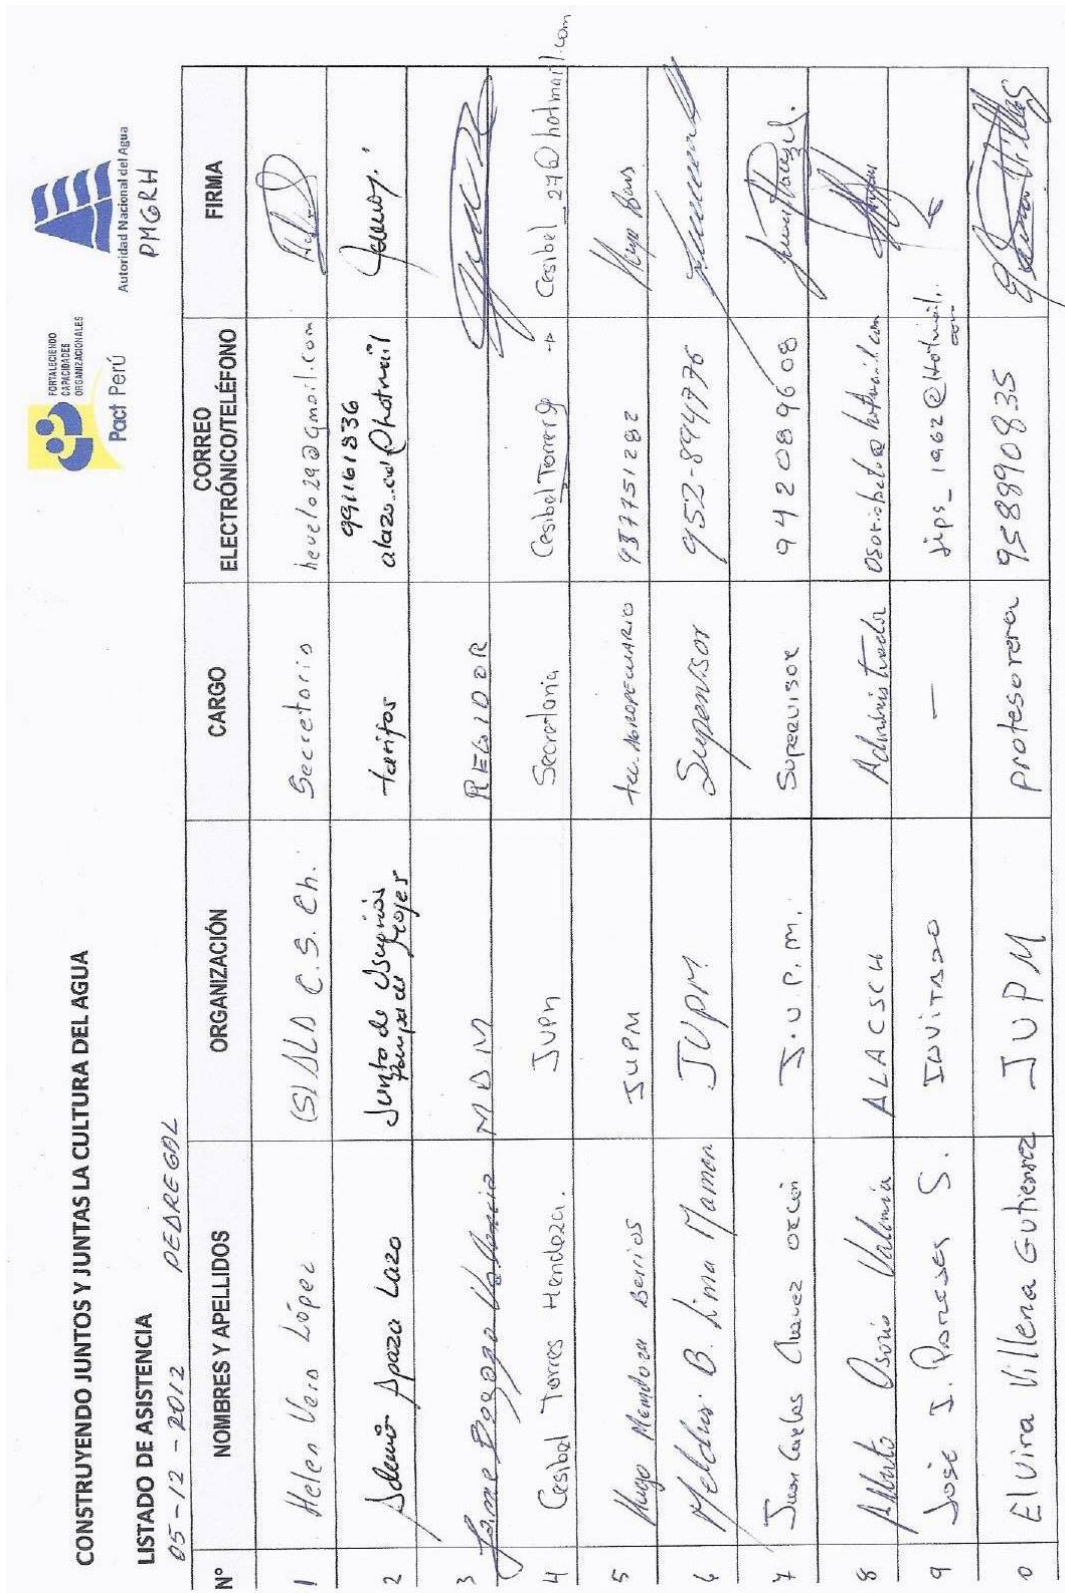 CONSTRUYENDO JUNTOS Y JUNTAS LA CULTURA DEL AGUA
FORTALECIENDO
CAPACIDADES
ORGANIZACIONALES
Pact Perú
Autoridad Nacional del Agua
DMGRH
LISTADO DE ASISTENCIA
05-12-2012 PEDREGAL
N° NOMBRES Y APELLIDOS ORGANIZACIÓN CARGO CORREO ELECTRÓNICO/TELÉFONO FIRMA
1 Helen Vera López C.S.Ch. Secretaria
2 Apaza Lazo Junta de Usuarios Pampa de Majes tarifas 991161836
3 MDM REGIDOR
4 Cesibel Torres Mendoza. JUPM Secretaria Cesibel Torres → Cesibel_27@hotmail.com
5 Hugo Mendoza Berrios JUPM tec. AGROPECUARIO 937751282
6 B. Lima JUPM Supervisor 952-894776
7 Juan Carlos Chavez J.U.P.M. Supervisor 942089608
8 Alberto Osorio Valencia ALA CSCH Administrador
9 José J. S. INVITADO — jips_1962@Hotmail.com
0 Elvira Villena Gutierrez JUPM protesorera 958890835